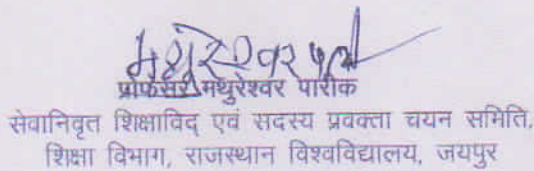 मथुरेश्वर
प्रोफेसर मथुरेश्वर पारीक
सेवानिवृत शिक्षाविद् एवं सदस्य प्रवक्ता चयन समिति,
शिक्षा विभाग, राजस्थान विश्वविद्यालय, जयपुर